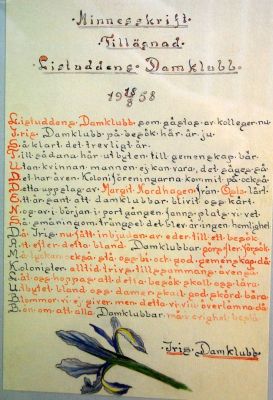 Minnesskrift
Tillägnad
Listuddens Damklubb
19 15/3 58
Listuddens Damklubb som gästas av kolleger nu
Iris Damklubb på besök här är ju
Så klart det trevligt är.
Till sådana här utbyten till gemenskap bär.
Utan kvinnan mannen ej kan vara, det säges så
Det har även Koloniföreningarna kommit på också
Detta uppslag av Margit Nordhagen från Oslo lärt
Ett är sant att damklubbar blivit oss kärt
Nog vi början i portgången fanns plats vi vet
Så småningom det blev är ingen hemlighet
Då Iris nu fått inbjudan av eder till ett besök
Att efter detta bland Damklubbar göra fler försök
Må lyckan också stå oss bi och god gemenskap då
Kolonister alltid trivs tillsammans även så
Låt oss hoppas att detta besök skall oss lära
Utbytet bland oss damer skall god skörd bära
Blommor vi ej giver men detta vi vill överlämna då
Bön om att alla Damklubbar evighet bestå
Iris Damklubb